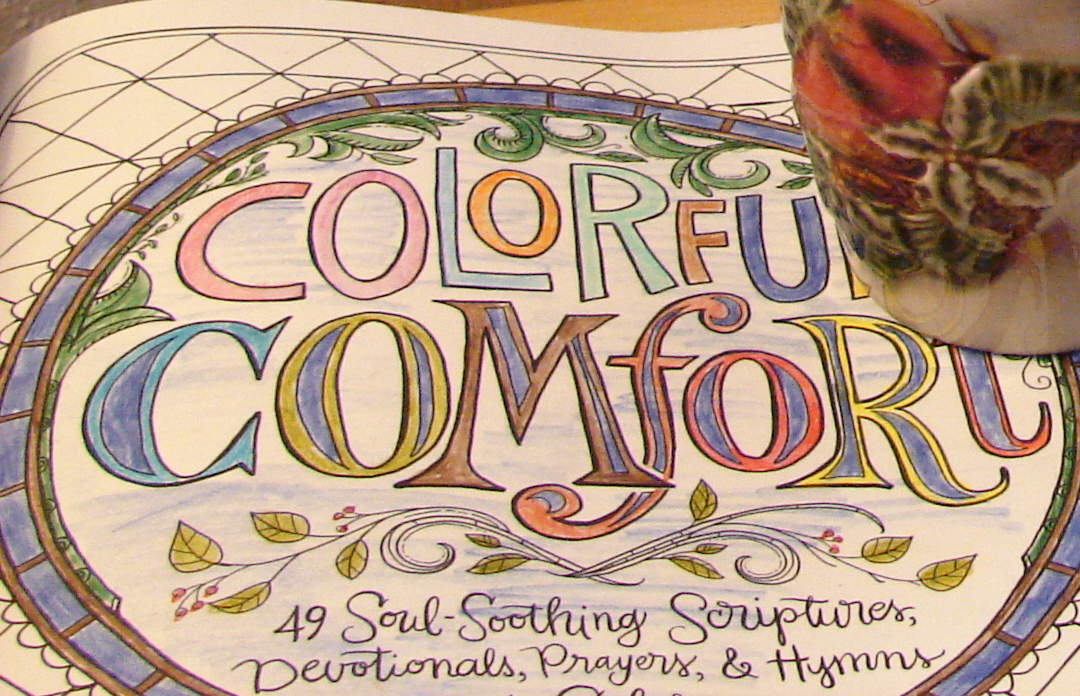 COLORFUL
COMfORT
49 Soul-Soothing Scriptures,
Devotionals, Prayers, & Hymns